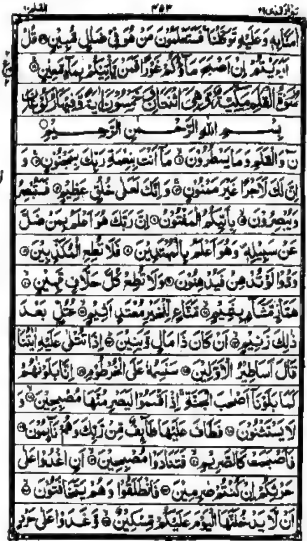 ٤٥٣
اٰمَنَّا بِهٖ وَعَلَيْهِ تَوَكَّلْنَا فَسَتَعْلَمُوْنَ مَنْ هُوَ فِيْ ضَلٰلٍ مُّبِيْنٍ قُلْ
اَرَءَيْتُمْ اِنْ اَصْبَحَ مَآؤُكُمْ غَوْرًا فَمَنْ يَّاْتِيْكُمْ بِمَآءٍ مَّعِيْنٍ
سُوْرَةُ الْقَلَمِ مَكِّيَّةٌ وَّهِيَ اثْنَتَانِ وَخَمْسُوْنَ اٰيَةً وَّفِيْهَا رُكُوْعَانِ
بِسْمِ اللّٰهِ الرَّحْمٰنِ الرَّحِيْمِ
نٓ وَالْقَلَمِ وَمَا يَسْطُرُوْنَ مَآ اَنْتَ بِنِعْمَةِ رَبِّكَ بِمَجْنُوْنٍ وَ
اِنَّ لَكَ لَاَجْرًا غَيْرَ مَمْنُوْنٍ وَاِنَّكَ لَعَلٰى خُلُقٍ عَظِيْمٍ فَسَتُبْصِرُ
وَيُبْصِرُوْنَ بِاَيِّكُمُ الْمَفْتُوْنُ اِنَّ رَبَّكَ هُوَ اَعْلَمُ بِمَنْ ضَلَّ
عَنْ سَبِيْلِهٖ وَهُوَ اَعْلَمُ بِالْمُهْتَدِيْنَ فَلَا تُطِعِ الْمُكَذِّبِيْنَ
وَدُّوْا لَوْ تُدْهِنُ فَيُدْهِنُوْنَ وَلَا تُطِعْ كُلَّ حَلَّافٍ مَّهِيْنٍ
هَمَّازٍ مَّشَّآءٍ بِنَمِيْمٍ مَّنَّاعٍ لِّلْخَيْرِ مُعْتَدٍ اَثِيْمٍ عُتُلٍّ بَعْدَ
ذٰلِكَ زَنِيْمٍ اَنْ كَانَ ذَا مَالٍ وَّبَنِيْنَ اِذَا تُتْلٰى عَلَيْهِ اٰيٰتُنَا
قَالَ اَسَاطِيْرُ الْاَوَّلِيْنَ سَنَسِمُهٗ عَلَى الْخُرْطُوْمِ اِنَّا بَلَوْنٰهُمْ
كَمَا بَلَوْنَآ اَصْحٰبَ الْجَنَّةِ اِذْ اَقْسَمُوْا لَيَصْرِمُنَّهَا مُصْبِحِيْنَ وَ
لَا يَسْتَثْنُوْنَ فَطَافَ عَلَيْهَا طَآئِفٌ مِّنْ رَّبِّكَ وَهُمْ نَآئِمُوْنَ
فَاَصْبَحَتْ كَالصَّرِيْمِ فَتَنَادَوْا مُصْبِحِيْنَ اَنِ اغْدُوْا عَلٰى
حَرْثِكُمْ اِنْ كُنْتُمْ صٰرِمِيْنَ فَانْطَلَقُوْا وَهُمْ يَتَخَافَتُوْنَ
اَنْ لَّا يَدْخُلَنَّهَا الْيَوْمَ عَلَيْكُمْ مِّسْكِيْنٌ وَّغَدَوْا عَلٰى حَرْدٍ